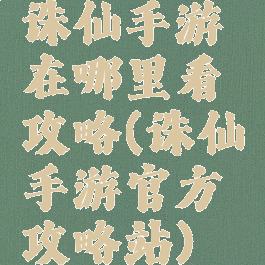 诛仙手游
在哪里看
攻略(诛仙
手游官方
攻略站)